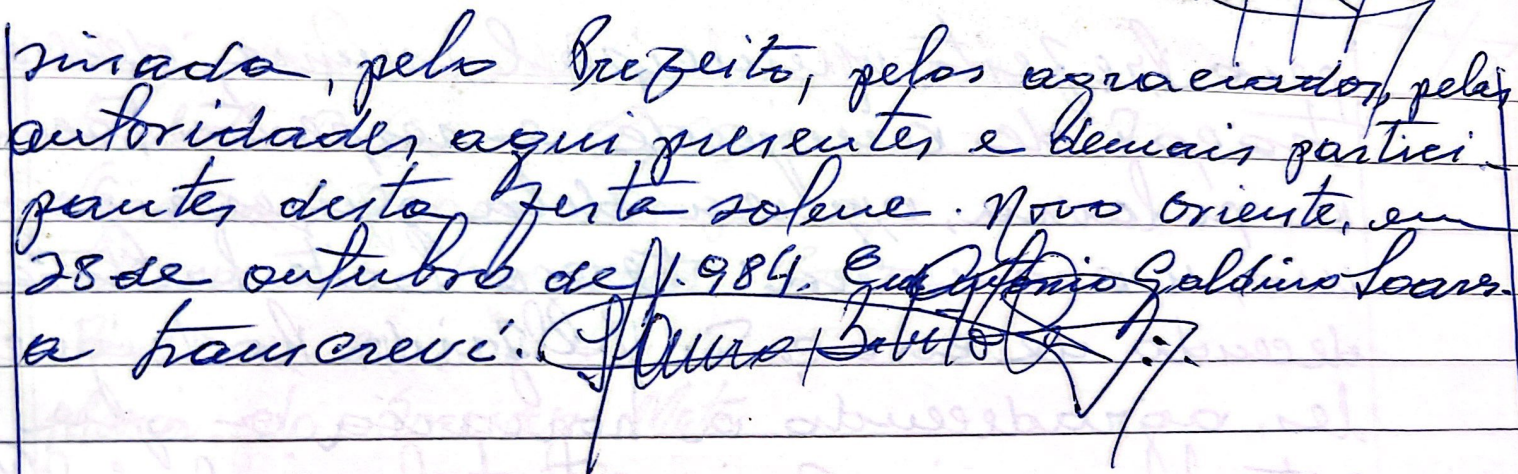 sinada, pelo Prefeito, pelos agraciados, pelas
autoridades aqui presentes e demais partici-
pantes desta festa solene. Novo Oriente, em
28 de outubro de 1.984. Eu Antonio Galdino Soares
a transcrevi.